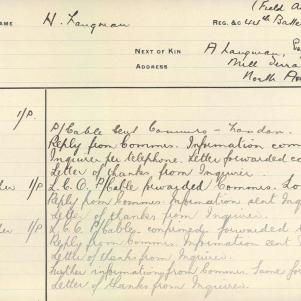 (Field A
AME H. Langman REG. &C 44th Batte
NEXT OF KIN A Langman,
ADDRESS Mill Terra
North A
1/P.
P/Cable sent Commrs – London.
Reply from Commrs. Information com
Inquirer per telephone. Letter forwarded co
Letter of thanks from Inquirer.
1/P L.C.O. P/Cable forwarded Commrs. Lo
Reply from Commrs. Information sent Inqu
Letter of thanks from Inquirer.
1/P L.C.O. P/Cable, confirmed, forwarded
Reply from Commrs. Information sent
Letter of thanks from Inquirer.
Further information from Commrs. Same for
Letter of thanks from Inquirer.